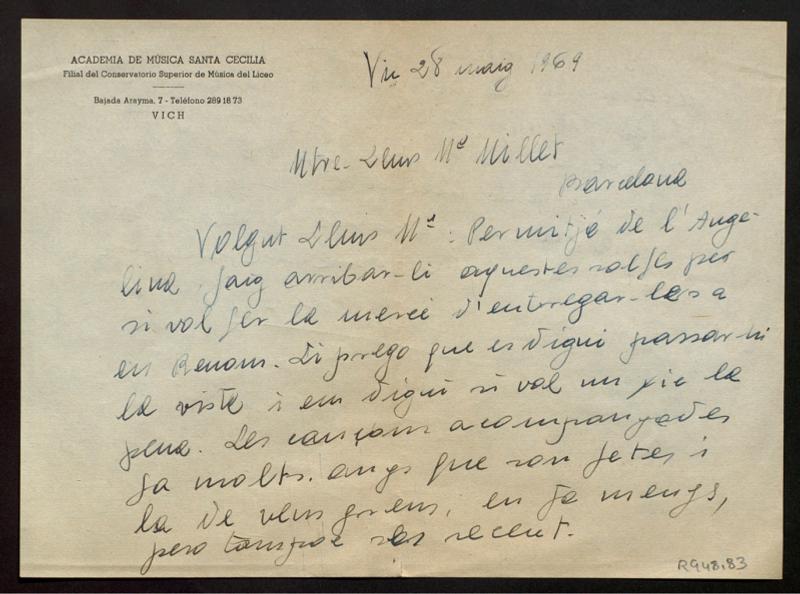 ACADEMIA DE MÚSICA SANTA CECILIA
Filial del Conservatorio Superior de Música del Liceo
Bajada Arayma, 7 - Teléfono 289 18 73
VICH
Vic 28 maig 1969
Mtre. Lluis Mª Millet
Barcelona
Volgut Lluis Mª: Permitjà de l'Ange-
lina, faig arribar-li aquestes solfes per
si vol fer la mercè d'entregar-les a
en Renom. Li prego que es digni passar-hi
la vista i em digui si val un xic la
pena. Les cançons acompanyades
fa molts anys que son fetes i
la de veus grens, en fa menys,
pero tampoc es recent.
R948.83